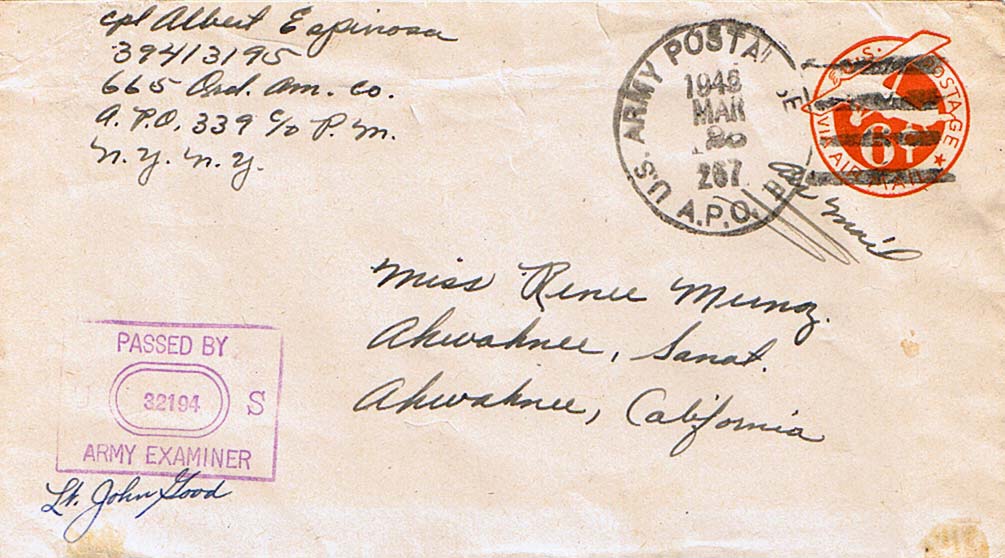 cpl Albert Espinosa
39413195
665 Ord. Am. Co.
A.P.O. 339 c/o P.M.
N.Y. N.Y.
U.S. ARMY POSTAL
A.P.O.
MAR
267
U.S. POSTAGE
6¢
VIA AIR MAIL
Air Mail
Miss Renee Munoz.
Ahwahnee, Sanat.
Ahwahnee, California
PASSED BY
32194 S
ARMY EXAMINER
Lt. John Good